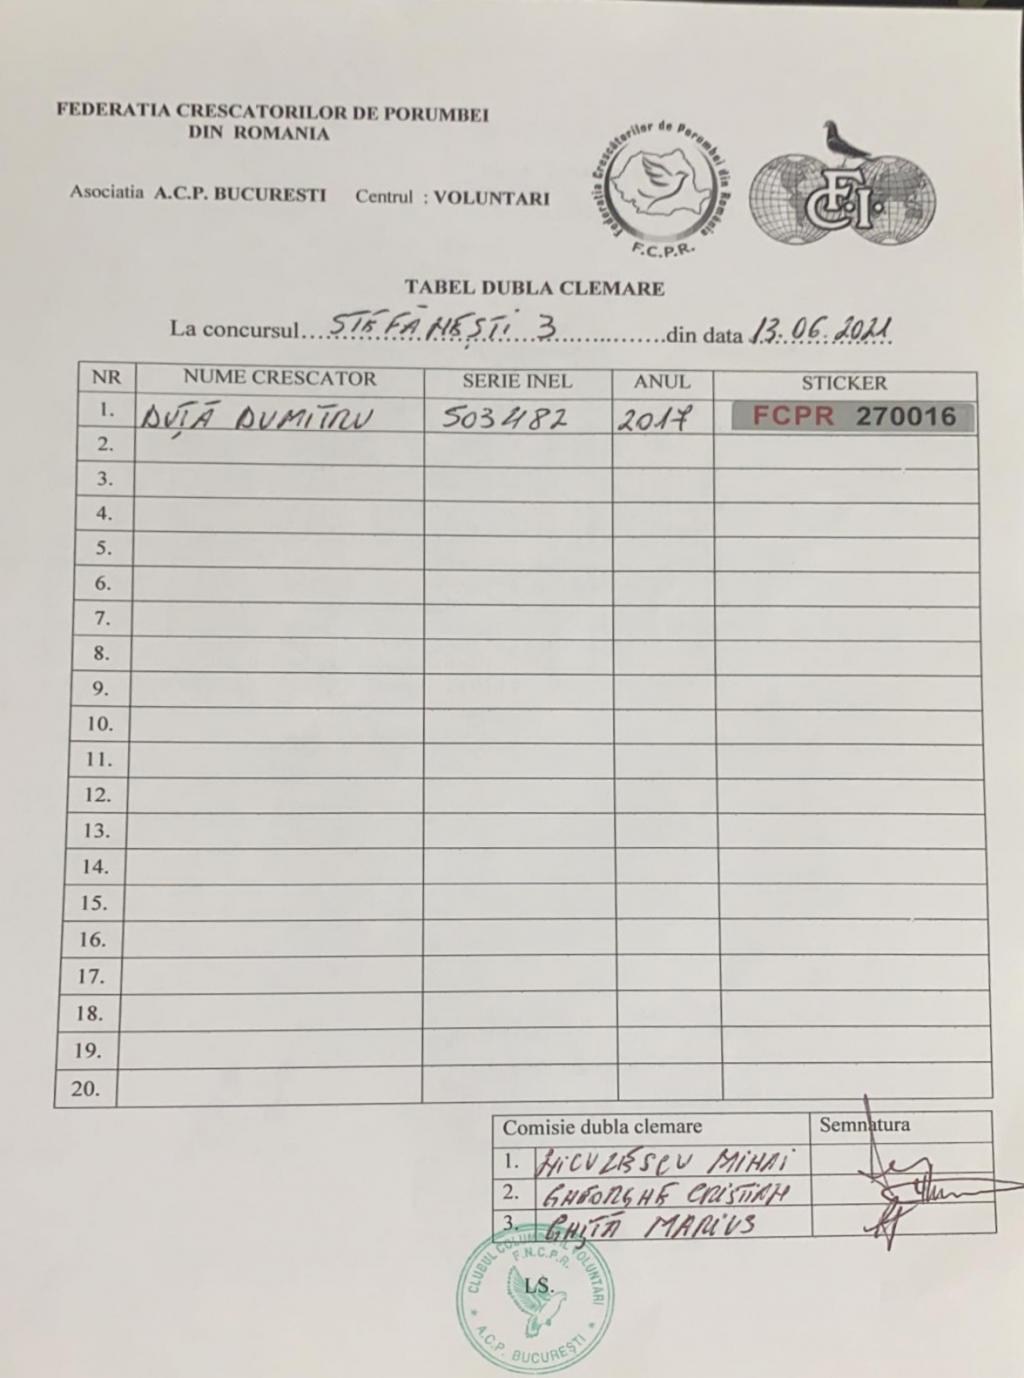 FEDERATIA CRESCATORILOR DE PORUMBEI
DIN ROMANIA
Federatia Crescătorilor de Porumbei din România
F.C.P.R.
F.C.I.
Asociatia A.C.P. BUCURESTI Centrul : VOLUNTARI
TABEL DUBLA CLEMARE
La concursul...ŞTEFĂNEŞTI 3...............din data 13.06.2021
NR NUME CRESCATOR SERIE INEL ANUL STICKER
1. DUŢĂ DUMITRU 503482 2017 FCPR 270016
2.
3.
4.
5.
6.
7.
8.
9.
10.
11.
12.
13.
14.
15.
16.
17.
18.
19.
20.
Comisie dubla clemare Semnatura
1. NICULESCU MIHAI
2. GHEORGHE CRISTIAN
3. GHIŢĂ MARIUS
CLUBUL COLUMBOFIL VOLUNTARI
F.N.C.P.R.
LS.
* A.C.P. BUCUREŞTI *